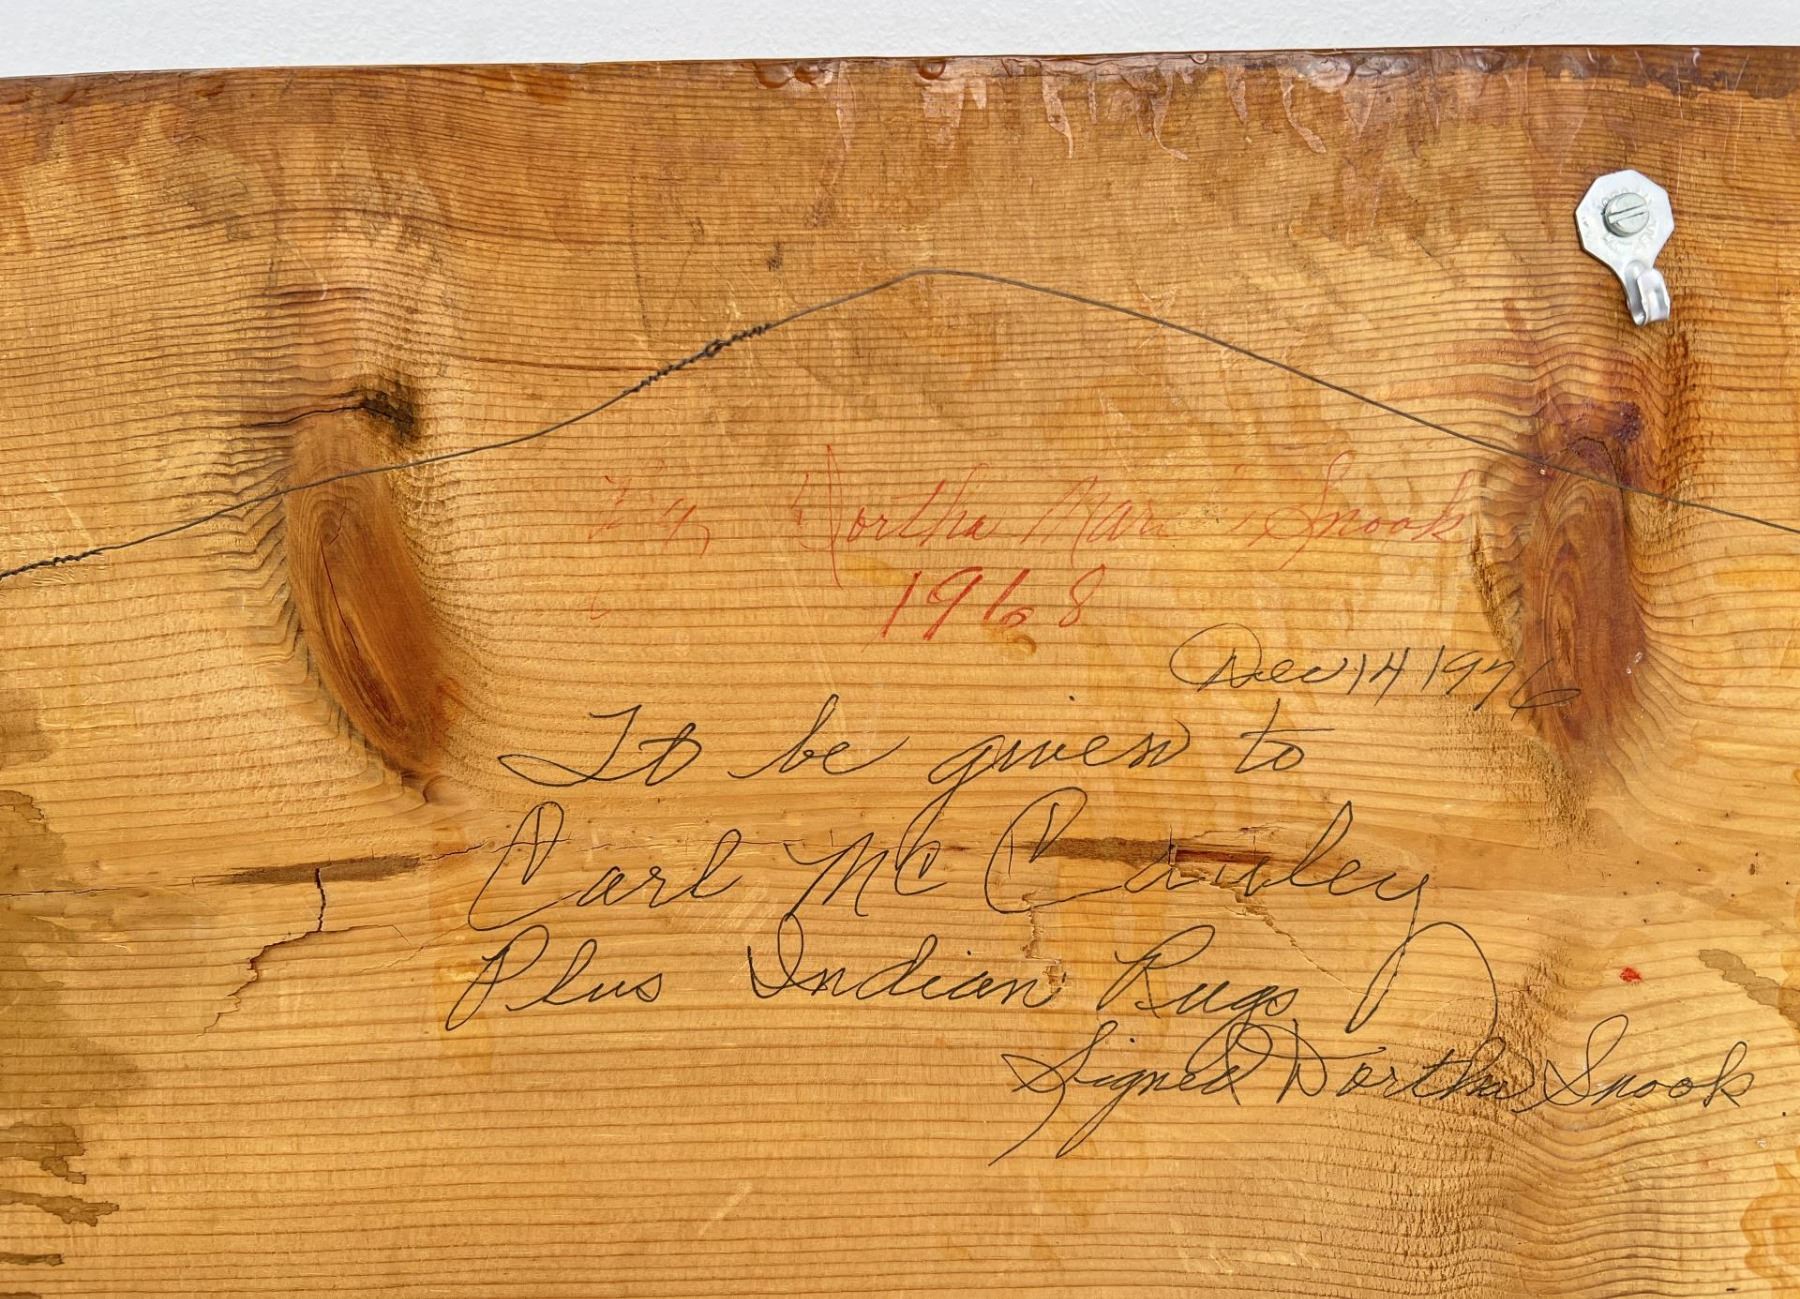 Dortha Marie Snook
1968
Dec 14 1976
To be given to
Carl Mc Cawley
Plus Indian Rugs
Signed Dortha Snook